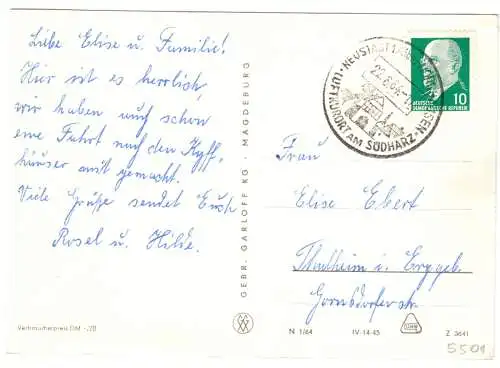 Liebe Elise u. Familie!
Hier ist es herrlich,
wir haben auch schon
eine Fahrt nach den Kyff-
häuser mit gemacht.
Viele Grüße sendet Euch
Rosel u. Hilde.
Verbraucherpreis DM -,20
GEBR. GARLOFF KG · MAGDEBURG
LUFTKURORT AM SÜDHARZ
DEUTSCHE
DEMOKRATISCHE REPUBLIK
10
Frau
Elise Ebert
Thalheim i. Erzgeb.
Gornsdorferstr
N 1/64 IV-14-45 Z 3641
5501